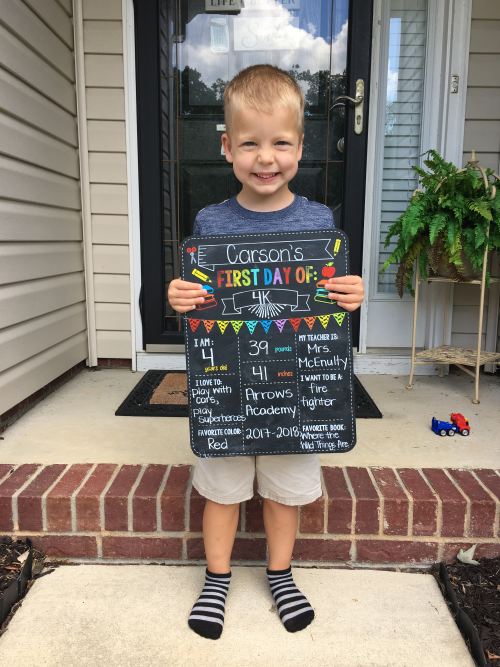 Carson's
FIRST DAY OF:
4K
I AM:
4
years old
I LOVE TO:
play with
cars,
play superheroes
FAVORITE COLOR:
Red
39 pounds
41 inches
Arrows
Academy
2017-2018
MY TEACHER IS:
Mrs.
McEnulty
I WANT TO BE A:
fire
fighter
FAVORITE BOOK:
Where the
Wild Things Are